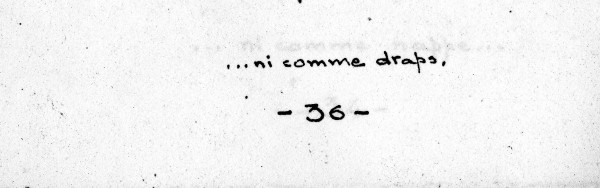 ...ni comme draps.
- 36 -